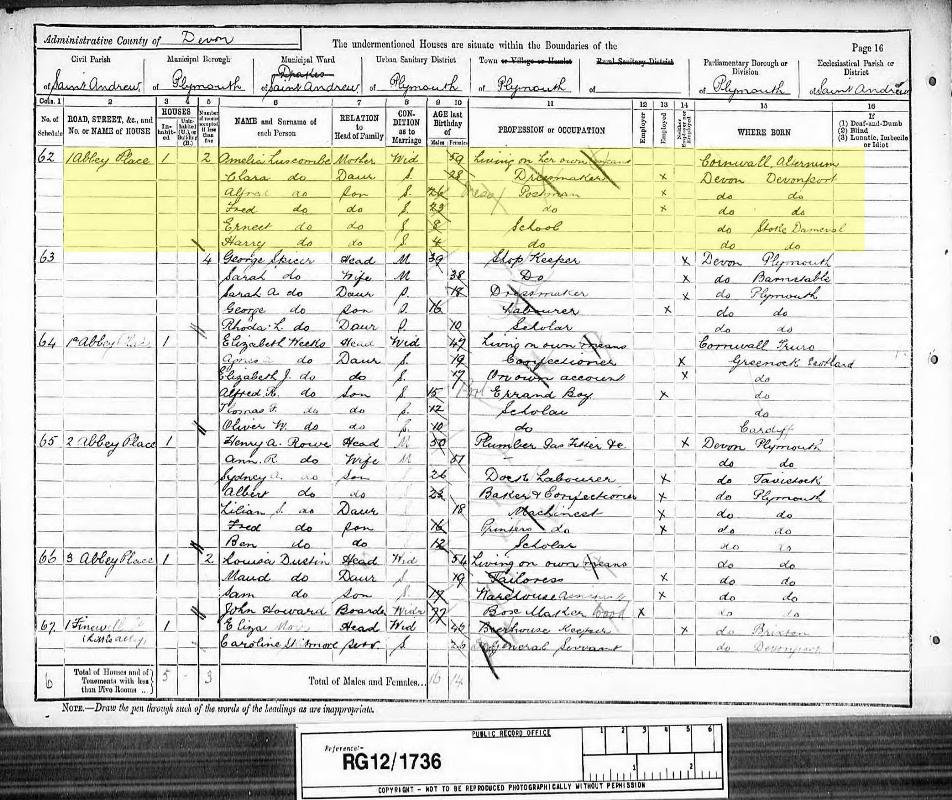 Administrative County of Devon
The undermentioned Houses are situate within the Boundaries of the
Page 16
Civil Parish
of Saint Andrew
Municipal Borough
of Plymouth
Municipal Ward
Drakes
of Saint Andrew
Urban Sanitary District
of Plymouth
Town or Village or Hamlet
of Plymouth
Rural Sanitary District
of
Parliamentary Borough or Division
of Plymouth
Ecclesiastical Parish or District
of Saint Andrew
Cols. 1 2 3 4 5 6 7 8 9 10 11 12 13 14 15 16
No. of Schedule
ROAD, STREET, &c., and No. or NAME of HOUSE
HOUSES
Inhabited
Uninhabited (U.), or Building (B.)
Number of rooms occupied if less than five
NAME and Surname of each Person
RELATION to Head of Family
CONDITION as to Marriage
AGE last Birthday of
Males
Females
PROFESSION or OCCUPATION
Employer
Employed
Neither Employer nor Employed
WHERE BORN
If
(1) Deaf-and-Dumb
(2) Blind
(3) Lunatic, Imbecile or Idiot
62 1 Abbey Place 1 2 Amelia Luscombe Mother Wid 59 Living on her own means Cornwall,
Clara do Daur S. 28 Dressmaker x Devon Devonport
Alfred do Son S. 26 Postman x do do
Fred do do S. 23 do x do do
Ernest do do S 8 School do Stoke Damerel
Harry do do S 4 do do do
63 4 George Spicer Head M 39 Shop Keeper x Devon Plymouth
Sarah do Wife M 38 Do x do Barnstable
Sarah A. do Daur S. 18 Dressmaker x do Plymouth
George do Son S. 16 Labourer x do do
Rhoda L. do Daur S. 10 Scholar do do
64 1a Abbey Place 1 Elizabeth Weeks Head Wid 47 Living on own means Cornwall Truro
Agnes do Daur S. 19 Confectioner x Greenock Scotland
Elizabeth J. do do S. 17 On own account x do
Alfred R. do Son S 15 Errand Boy x do
Thomas F. do do S. 12 Scholar do
Oliver W. do do S. 10 do Cardiff
65 2 Abbey Place 1 Henry A. Rowe Head M 50 Plumber Gas Fitter &c x Devon Plymouth
Ann. R. do Wife M 51 do do
Sydney A. do Son 26 Dock Labourer x do Tavistock
Albert do do 23 Baker & Confectioner x do Plymouth
Lilian S. do Daur 18 Machinest x do do
Fred do Son 16 Printers do x do do
Ben do do 12 Scholar do do
66 3 Abbey Place 1 2 Louisa Dustin Head Wid 54 Living on own means do do
Maud do Daur 19 Tailoress x do do
Sam do Son 17 Warehouse x do do
John Howard Boarder Widr 77 Box Maker Wood x do do
67 1 1 Eliza Head Wid 46 Beerhouse Keeper x do Brixton
Caroline Serv. S 26 General Servant do Devonport
6
Total of Houses and of Tenements with less than Five Rooms 5 - 3
Total of Males and Females... 16 14
NOTE.—Draw the pen through such of the words of the headings as are inappropriate.
PUBLIC RECORD OFFICE
Reference:-
RG12/1736
1 2 3 4 5 6
1 2
COPYRIGHT - NOT TO BE REPRODUCED PHOTOGRAPHICALLY WITHOUT PERMISSION